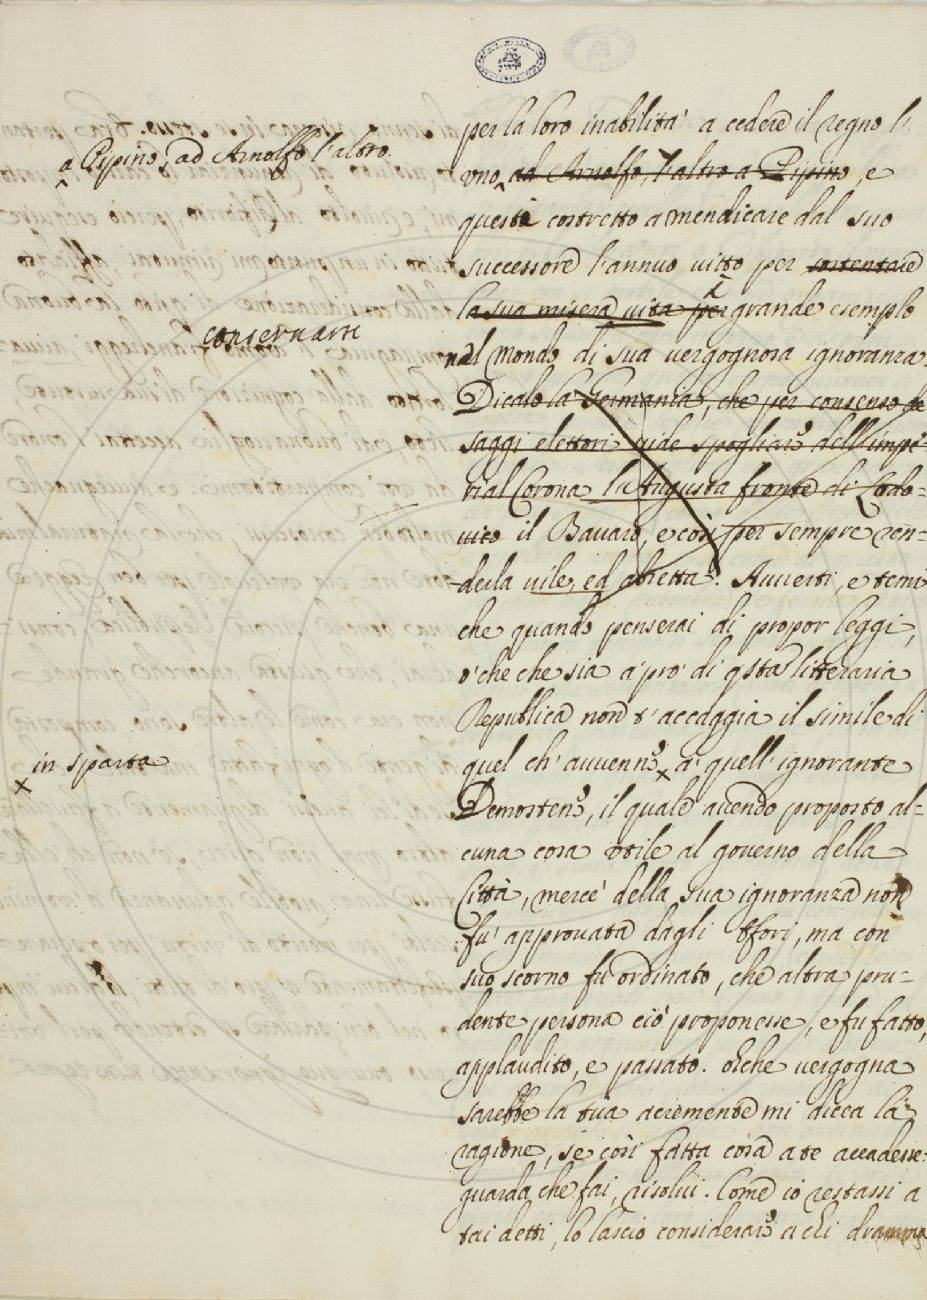 per la loro inabilità a cedere il regno l'
a Pipino, ad Arnolfo l'altro
uno, ad Arnolfo, l'altro a Pipino, e
questi costretto a mendicare dal suo
successore l'annuo vitto per sostentare
la sua misera vita per grande esemplo
conservarsi
al mondo di sua vergognosa ignoranza.
Dicalo la Germania, che per consenso de
saggi elettori vide spogliare dell'impe-
rial Corona l'Augusta fronte di Lodo-
vico il Bavaro, e così per sempre ren-
derla vile, ed abietta. Avverti, e temi
che quando penserai di propor leggi,
o' che che sia a' pro' di qsta litteraria
Republica non t'accaggia il simile di
in sparta
quel ch'avvenne a' quell'ignorante
Demostene, il quale avendo proposto al-
cuna cosa utile al governo della
Città, mercè della sua ignoranza non
fu' approvata dagli Efori, ma con
suo scorno fu ordinato, che altra pru-
dente persona ciò proponesse, e fu fatto,
applaudito, e passato. Oche vergogna
sarebbe la tua acremente mi dicea la
ragione, se così fatta cosa a te accadesse.
guarda che fai, risolvi. Come io restassi a
tai detti, lo lascio considerare a chi dramma